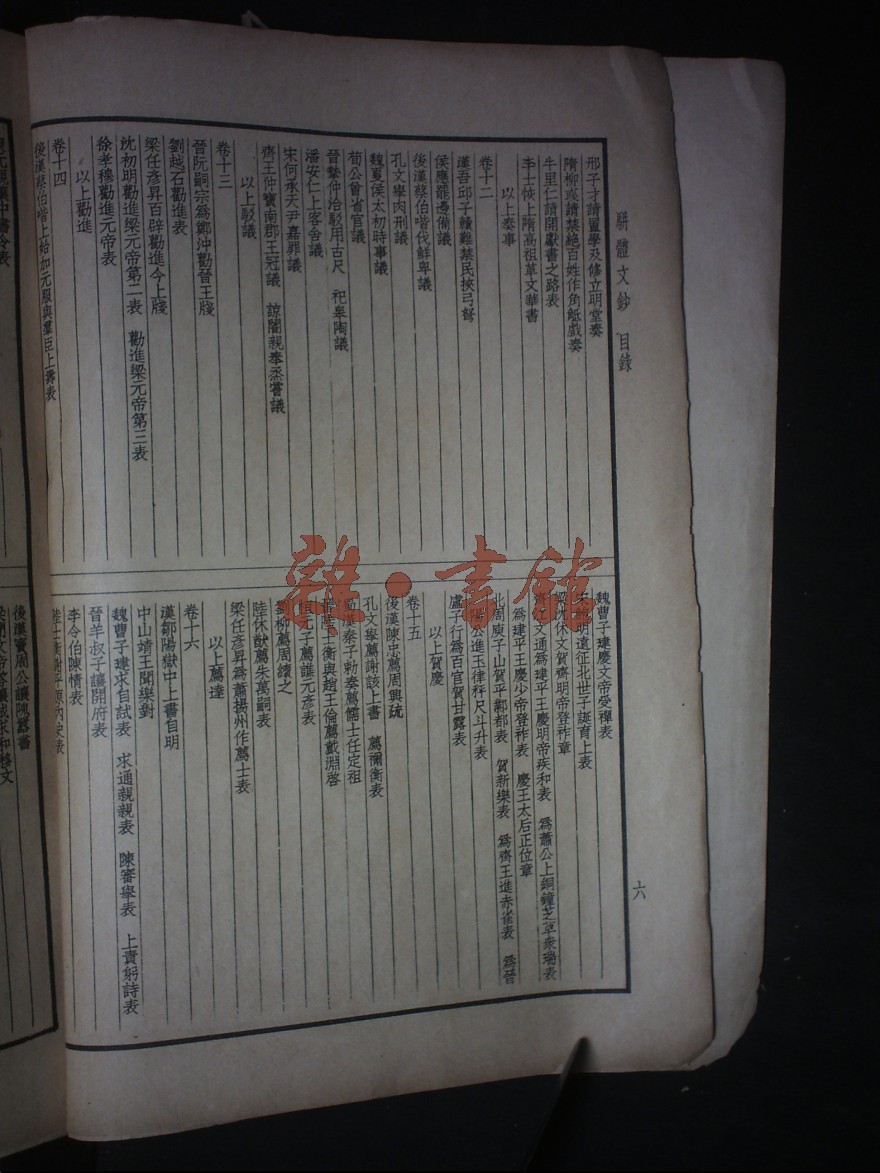 駢體文鈔 目錄
六
邢子才請置學及修立明堂奏
隋柳彧請禁絕百姓作角觝戲奏
牛里仁請開獻書之路表
李士恢上隋高祖革文華書
以上奏事
卷十二
漢吾邱子贛難禁民挾弓弩
侯應罷邊備議
後漢蔡伯喈伐鮮卑議
孔文舉肉刑議
魏夏侯太初時事議
荀公曾省官議
晉摯仲洽駁用古尺 祀皋陶議
潘安仁上客舍議
宋何承天尹嘉罪議
齊王仲寶南郡王冠議 諒闇親奉烝嘗議
以上駁議
卷十三
晉阮嗣宗爲鄭沖勸晉王牋
劉越石勸進表
梁任彥昇百辟勸進今上牋
沈初明勸進梁元帝第二表 勸進梁元帝第三表
徐孝穆勸進元帝表
以上勸進
卷十四
後漢蔡伯喈上始加元服與羣臣上壽表
魏曹子建慶文帝受禪表
征北世子誕育上表
梁沈休文賀齊明帝登祚章
文通爲建平王慶明帝疾和表 爲蕭公上銅鐘芝草衆瑞表
爲建平王慶少帝登祚表 慶王太后正位章
北周庾子山賀平鄴都表 賀新樂表 爲齊王進赤雀表 爲晉
陽公進玉律秤尺斗升表
盧子行爲百官賀甘露表
以上賀慶
卷十五
後漢陳忠薦周興疏
孔文舉薦謝該上書 薦禰衡表
蜀漢秦子勅奏薦儒士任定祖
晉陸士衡與趙王倫薦戴淵啓
桓元子薦譙元彥表
劉柳薦周續之
陸休猷薦朱萬嗣表
梁任彥昇爲蕭揚州作薦士表
以上薦達
卷十六
漢鄒陽獄中上書自明
中山靖王聞樂對
魏曹子建求自試表 求通親親表 陳審舉表 上責躬詩表
晉羊叔子讓開府表
李令伯陳情表
陸士衡謝平原內史表